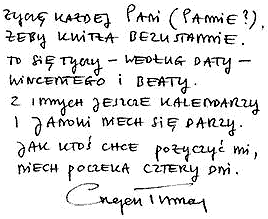 ŻYCZĘ KAŻDEJ PANI (PANNIE?),
ŻEBY KWITŁA BEZUSTANNIE.
TO SIĘ TYCZY – WEDŁUG DATY –
WINCENTEGO I BEATY.
Z INNYCH JESZCZE KALENDARZY
I JANOWI NIECH SIĘ DARZY.
JAK KTOŚ CHCE POŻYCZYĆ MI,
NIECH POCZEKA CZTERY DNI.